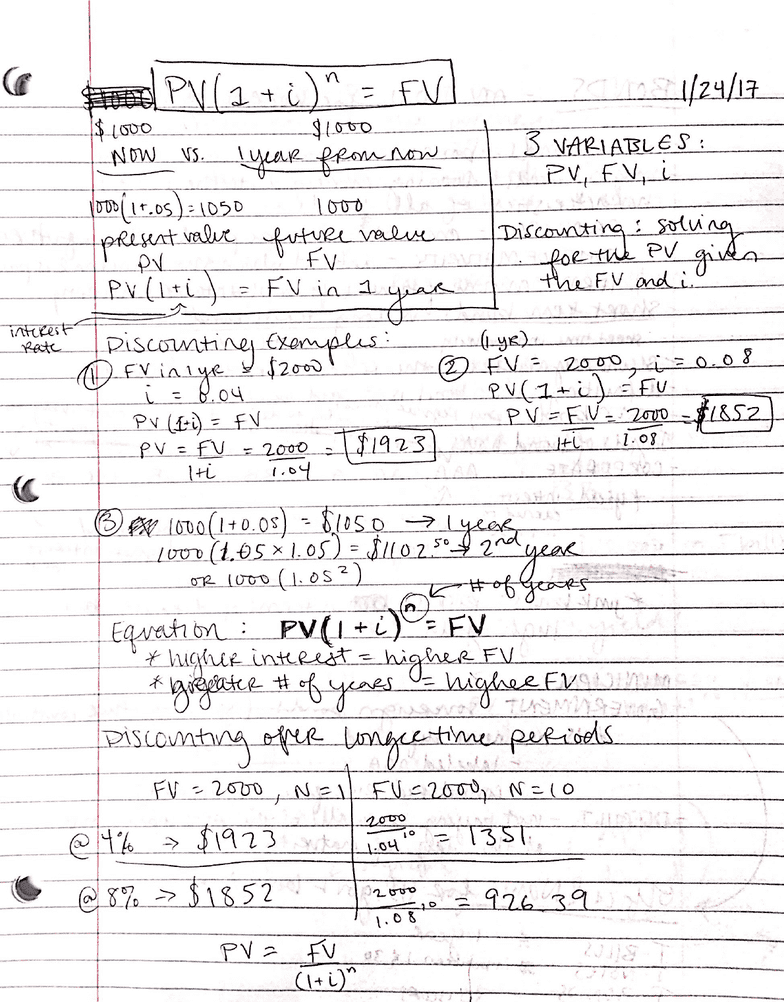 PV(1 + i)^n = FV
1/24/17
$1000 $1000
NOW vs. 1 year from now
1000(1+.05)=1050 1000
present value future value
PV FV
PV(1+i) = FV in 1 year
interest
Rate
3 VARIABLES:
PV, FV, i
Discounting: solving
for the PV given
the FV and i.
Discounting Examples:
① FV in 1 yr = $2000
i = 0.04
PV(1+i) = FV
PV = FV/1+i = 2000/1.04 = $1923
(1 yr)
② FV = 2000, i = 0.08
PV(1+i) = FV
PV = FV/1+i = 2000/1.08 = $1852
③ 1000(1+0.05) = $1050 → 1 year
1000(1.05 × 1.05) = $1102.50 → 2nd year
OR 1000(1.05²)
← # of years
Equation: PV(1+i)^n = FV
* higher interest = higher FV
* greater # of years = higher FV
Discounting over longer time periods
FV = 2000, N = 1 | FV = 2000, N = 10
@ 4% → $1923 2000/1.04^10 = 1351
@ 8% → $1852 2000/1.08^10 = 926.39
PV = FV/(1+i)^n